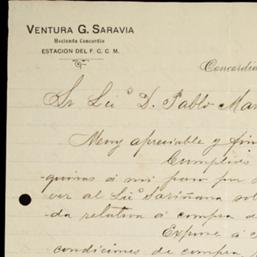 VENTURA G. SARAVIA
Hacienda Concordia
ESTACION DEL F. C. C. M.
Concordia
Sr Lic.º D. Pablo Mar
Muy apreciable y fin
Cumplies
quiras á mi paso por
ver al Lic.º Sariñana sob
da relativa á compra d
Expuse á
condiciones de compra